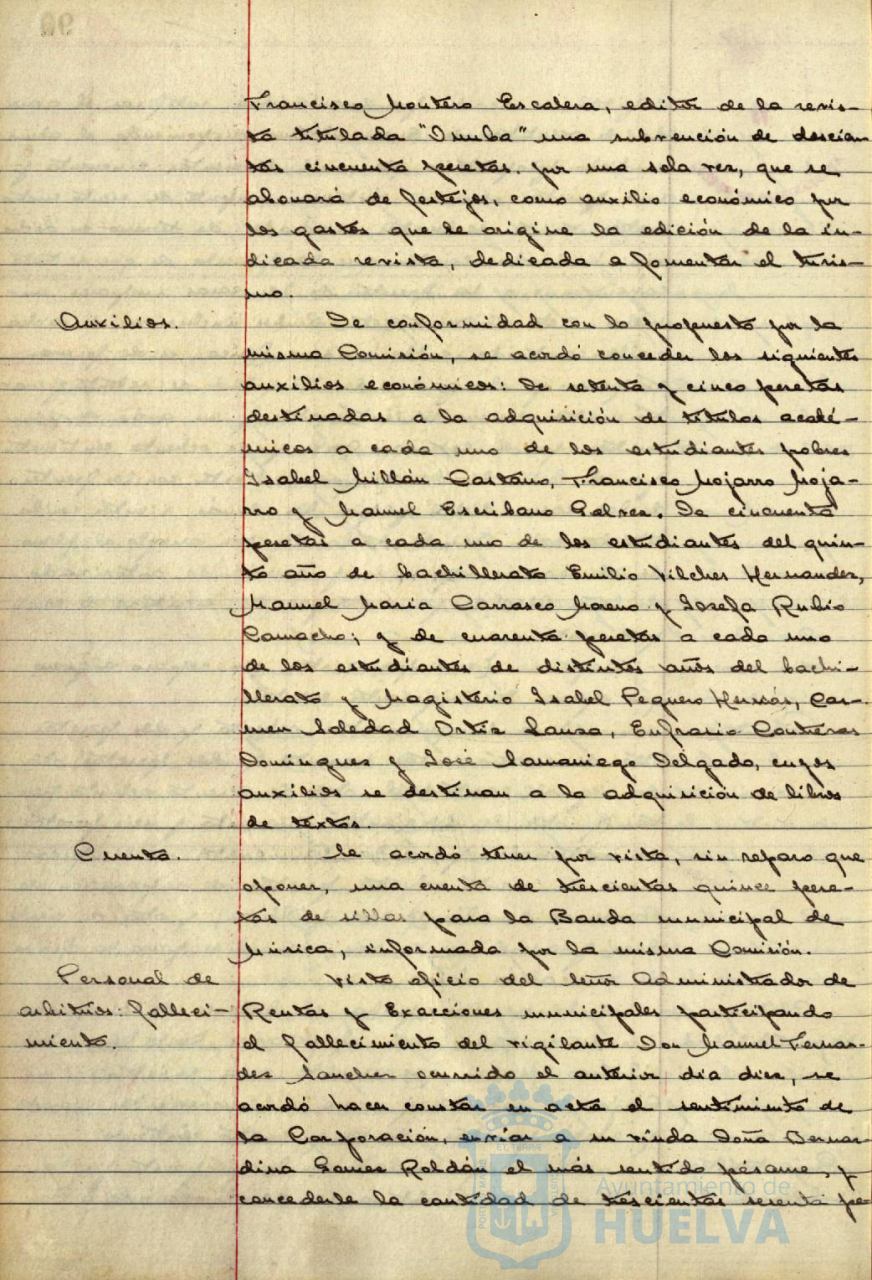 Francisco Montero Escalera, editor de la revis-
ta titulada "Onuba" una subvención de doscien
tas cincuenta pesetas, por una sola vez, que se
abonará de festejos, como auxilio económico por
los gastos que se origine la edición de la in-
dicada revista, dedicada a fomentar el turis-
mo.
Auxilios.
De conformidad con lo propuesto por la
misma Comisión, se acordó conceder los siguientes
auxilios económicos: De setenta y cinco pesetas
destinadas a la adquisición de títulos acadé-
micos a cada uno de los estudiantes pobres
Isabel Millán Castaño, Francisco Mojarro Moja-
rro y Manuel Escribano Galvez. De cincuenta
pesetas a cada uno de los estudiantes del quin-
to año de bachillerato Emilio Vilches Hernandez,
Manuel Maria Carrasco Moreno y Josefa Rubio
Camacho; y de cuarenta pesetas a cada uno
de los estudiantes de distintos años del bachi-
llerato y Magisterio Isabel Peguero, Car-
men Soledad Ortiz Sanza, Eufrasio Contreras
Domínguez y José Samaniego Delgado, cuyos
auxilios se destinan a la adquisición de libros
de textos.
Cuenta.
Se acordó tener por vista, sin reparo que
oponer, una cuenta de trescientas quince pese-
tas de sillas para la Banda municipal de
Música, informada por la misma Comisión.
Personal de
arbitrios: falleci-
miento.
Visto oficio del Señor Administrador de
Rentas y Exacciones municipales participando
el fallecimiento del vigilante Don Manuel Fernan-
dez Sanchez ocurrido el anterior dia diez, se
acordó hacer constar en acta el sentimiento de
la Corporación, enviar a su viuda Doña Bernar-
dina Gomez Roldán el más sentido pésame, y
concederle la cantidad de trescientas sesenta pe-
Ayuntamiento de
HUELVA